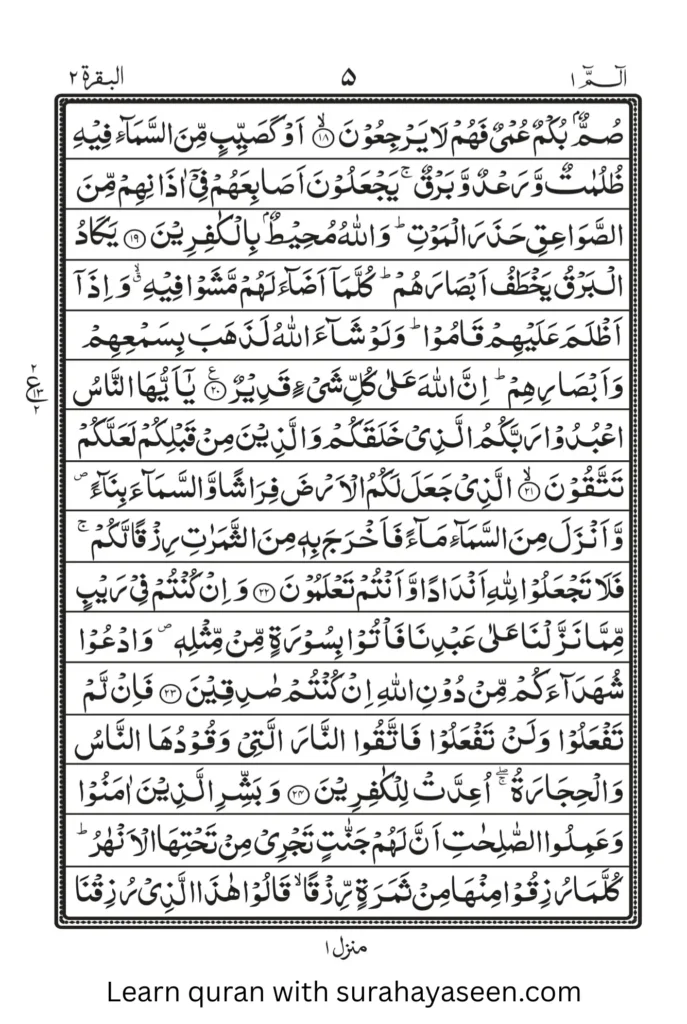 الٓـمّٓ ۱ ۵ البقرة ۲
صُمٌّۢ بُكْمٌ عُمْيٌ فَهُمْ لَا يَرْجِعُوْنَ ۙ‏﴿۱۸﴾ اَوْ كَصَيِّبٍ مِّنَ السَّمَآءِ فِيْهِ
ظُلُمٰتٌ وَّرَعْدٌ وَّبَرْقٌ ۚ يَجْعَلُوْنَ اَصَابِعَهُمْ فِيْۤ اٰذَانِهِمْ مِّنَ
الصَّوَاعِقِ حَذَرَ الْمَوْتِ ؕ وَاللّٰهُ مُحِيْطٌۢ بِالْكٰفِرِيْنَ ﴿۱۹﴾ يَكَادُ
الْبَرْقُ يَخْطَفُ اَبْصَارَهُمْ ؕ كُلَّمَاۤ اَضَآءَ لَهُمْ مَّشَوْا فِيْهِ ۙۗ وَاِذَاۤ
اَظْلَمَ عَلَيْهِمْ قَامُوْا ؕ وَلَوْ شَآءَ اللّٰهُ لَذَهَبَ بِسَمْعِهِمْ
وَاَبْصَارِهِمْ ؕ اِنَّ اللّٰهَ عَلٰى كُلِّ شَيْءٍ قَدِيْرٌ ﴿۲۰﴾ ع يٰۤاَيُّهَا النَّاسُ
۲ ع ۱۳ ۲
اعْبُدُوْا رَبَّكُمُ الَّذِيْ خَلَقَكُمْ وَالَّذِيْنَ مِنْ قَبْلِكُمْ لَعَلَّكُمْ
تَتَّقُوْنَ ۙ﴿۲۱﴾ الَّذِيْ جَعَلَ لَكُمُ الْاَرْضَ فِرَاشًا وَّالسَّمَآءَ بِنَآءً ص
وَّاَنْزَلَ مِنَ السَّمَآءِ مَآءً فَاَخْرَجَ بِهٖ مِنَ الثَّمَرٰتِ رِزْقًا لَّكُمْ ۚ
فَلَا تَجْعَلُوْا لِلّٰهِ اَنْدَادًا وَّاَنْتُمْ تَعْلَمُوْنَ ﴿۲۲﴾ وَاِنْ كُنْتُمْ فِيْ رَيْبٍ
مِّمَّا نَزَّلْنَا عَلٰى عَبْدِنَا فَاْتُوْا بِسُوْرَةٍ مِّنْ مِّثْلِهٖ ص وَادْعُوْا
شُهَدَآءَكُمْ مِّنْ دُوْنِ اللّٰهِ اِنْ كُنْتُمْ صٰدِقِيْنَ ﴿۲۳﴾ فَاِنْ لَّمْ
تَفْعَلُوْا وَلَنْ تَفْعَلُوْا فَاتَّقُوا النَّارَ الَّتِيْ وَقُوْدُهَا النَّاسُ
وَالْحِجَارَةُ ۖۚ اُعِدَّتْ لِلْكٰفِرِيْنَ ﴿۲۴﴾ وَبَشِّرِ الَّذِيْنَ اٰمَنُوْا
وَعَمِلُوا الصّٰلِحٰتِ اَنَّ لَهُمْ جَنّٰتٍ تَجْرِيْ مِنْ تَحْتِهَا الْاَنْهٰرُ ؕ
كُلَّمَا رُزِقُوْا مِنْهَا مِنْ ثَمَرَةٍ رِّزْقًا ۙ قَالُوْا هٰذَا الَّذِيْ رُزِقْنَا
منزل ۱
Learn quran with surahayaseen.com